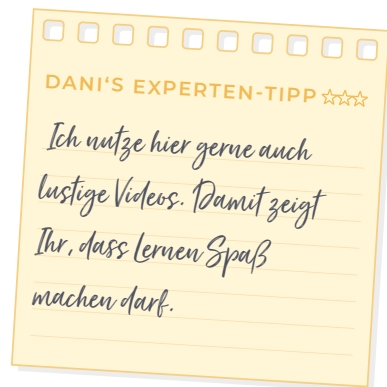 DANI‘S EXPERTEN-TIPP
Ich nutze hier gerne auch
lustige Videos. Damit zeigt
Ihr, dass Lernen Spaß
machen darf.